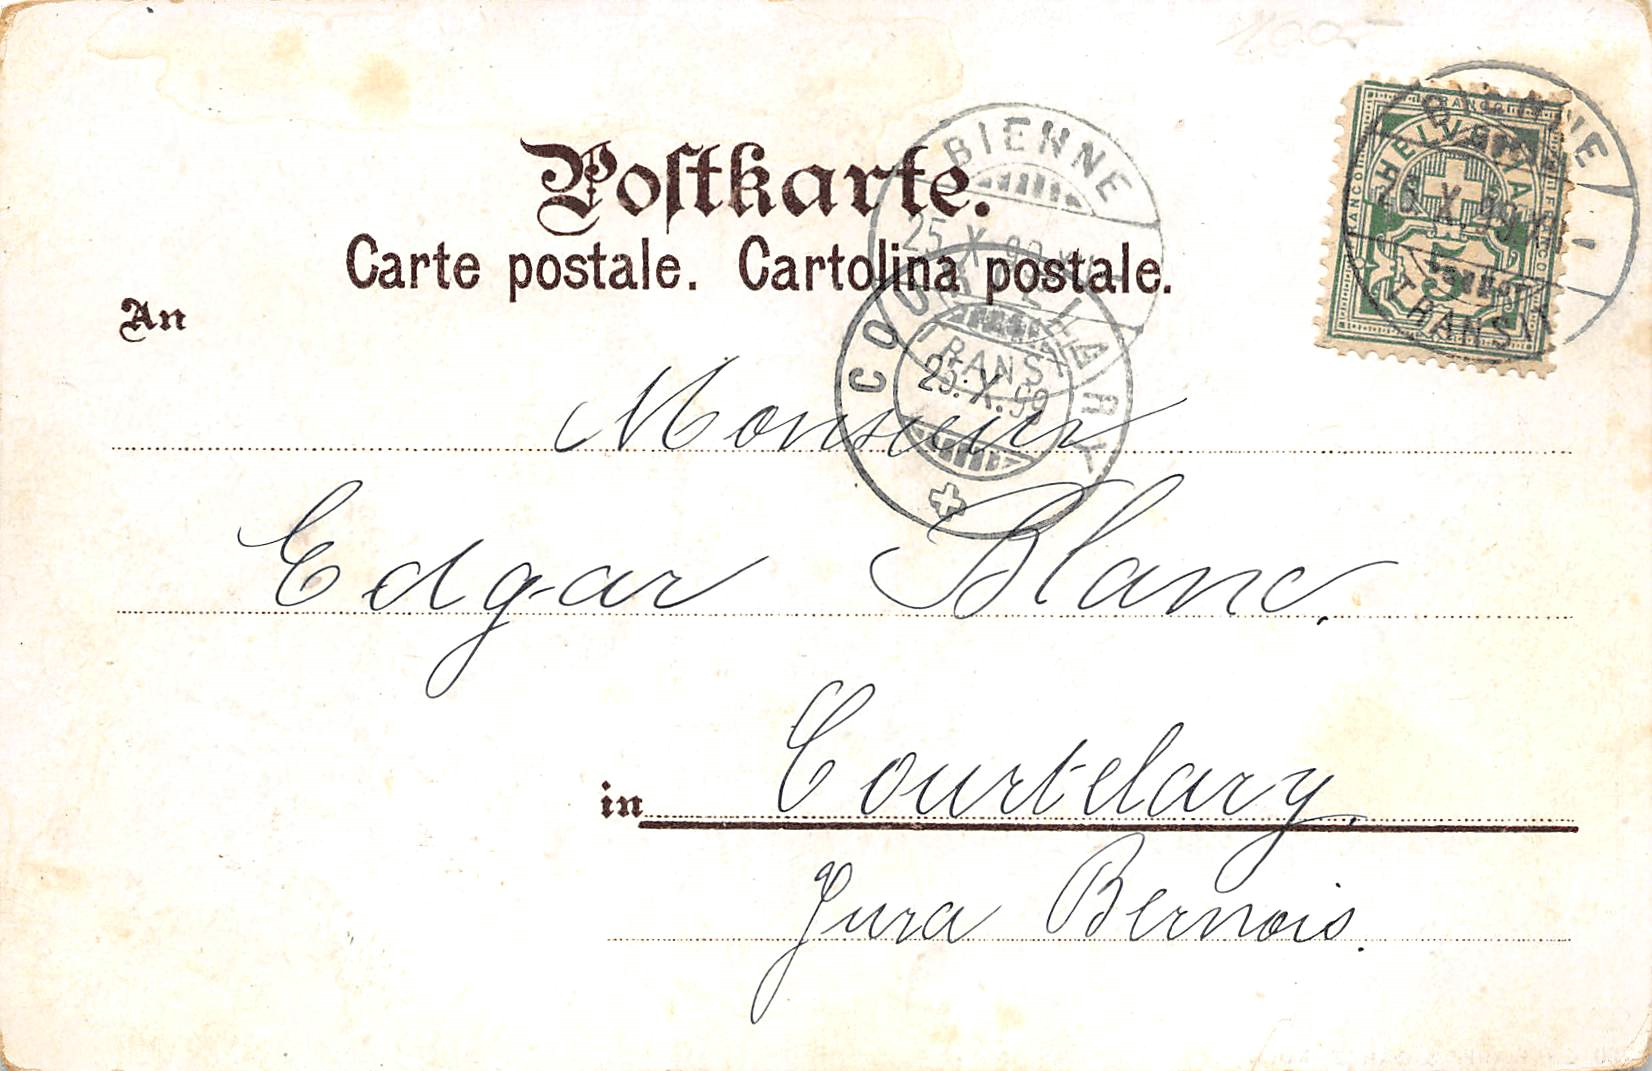 Postkarte.
Carte postale. Cartolina postale.
An
Monsieur
Edgar Blanc.
in Courtelary.
Jura Bernois.
BIENNE
25. X. 99
TRANSIT
COURTELARY
25. X. 99
FRANCO
HELVETIA
5
BIENNE
TRANSIT